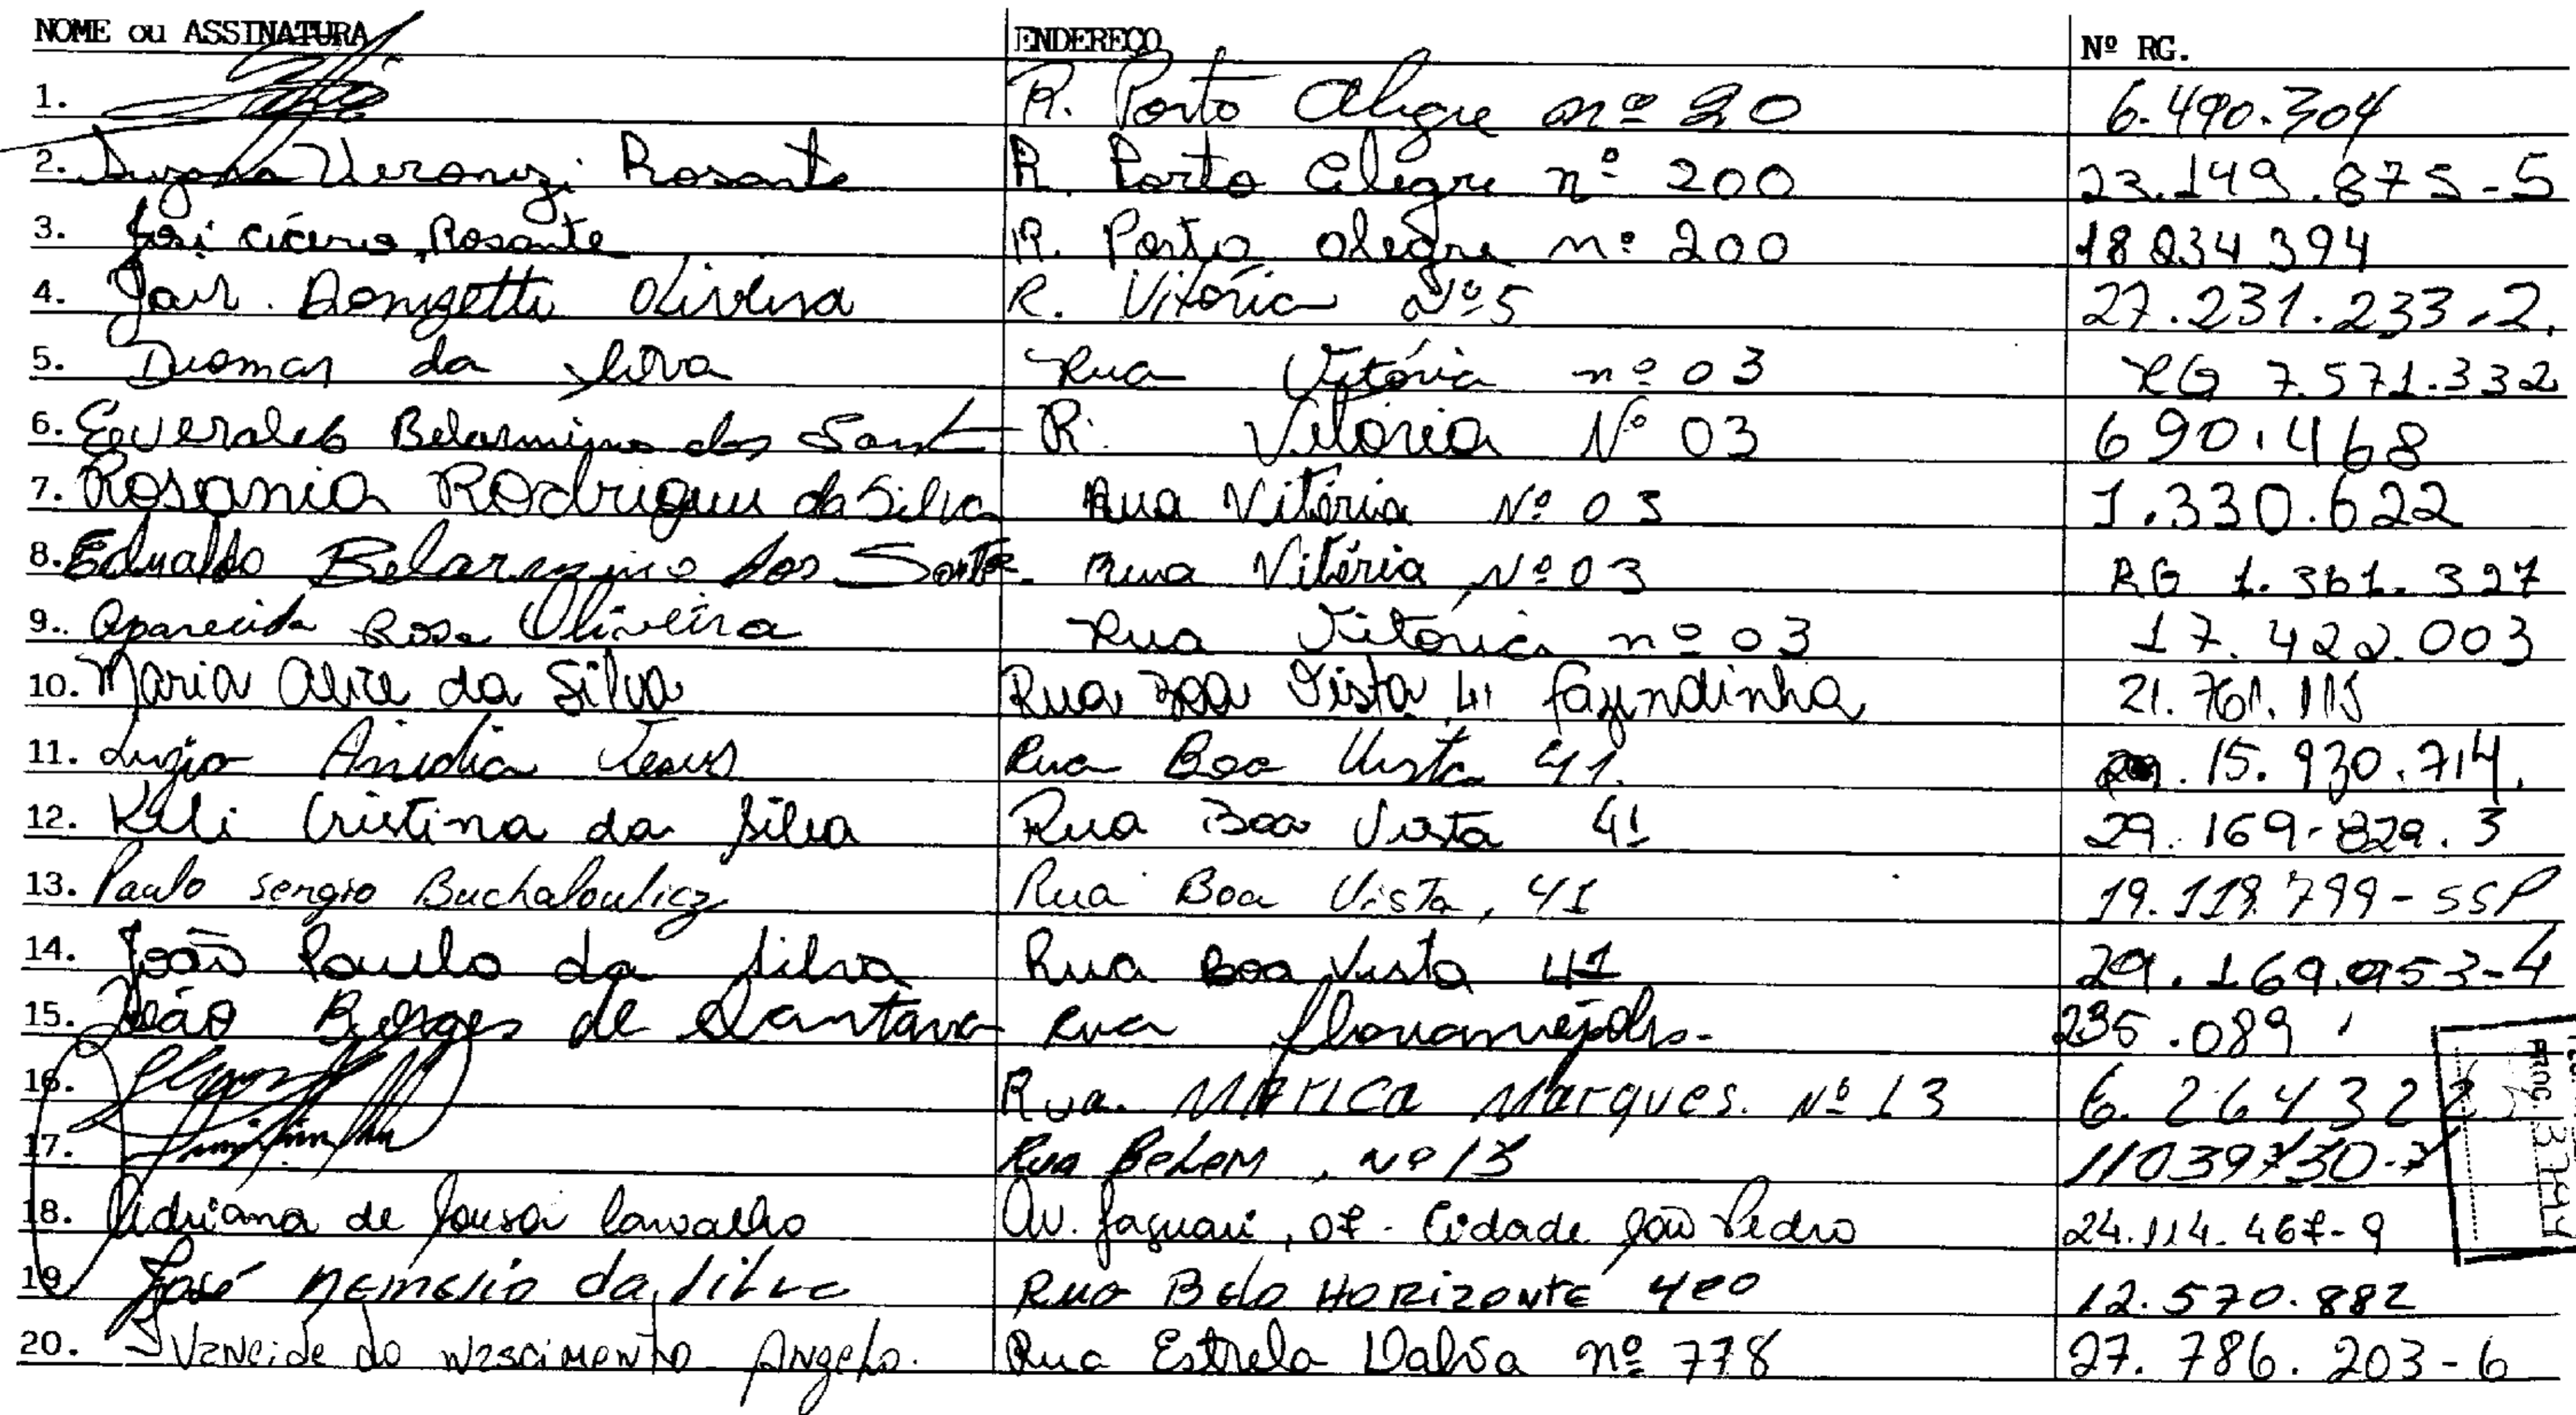 NOME ou ASSINATURA ENDEREÇO Nº RG.
1. R. Porto Alegre nº 20 6.490.304
2. Veronezi Rosante R. Porto Alegre nº 200 23.149.875-5
3. José Cícero Rosante R. Porto Alegre nº 200 18234394
4. Jair Donizetti Oliveira R. Vitória Nº 5 27.231.233-2.
5. Diomar da Silva Rua Vitória nº 03 RG 7.571.332
6. Belarmino dos Sant R. Vitória Nº 03 690.468
7. Rosania Rodrigues da Silva Rua Vitória Nº 03 1.330.622
8. Edualdo Belarmino dos Santos Rua Vitória Nº 03 RG 1.361.327
9. Aparecida Rosa Oliveira Rua Vitória nº 03 17.422.003
10. Maria Alice da Silva Rua Boa Vista 41 fazendinha 21.761.115
11. Luzia Jesus Rua Boa Vista 41. 15.930.714.
12. Keli Cristina da Silva Rua Boa Vista 41 29.169.829.3
13. Paulo Sergio Buchaloulicz Rua Boa Vista, 41 19.119.799-SSP
14. João Paulo da Silva Rua Boa Vista 41 29.169.953-4
15. João Borges de Santana Rua 235.089
16. Rua Marques. Nº 13 6.264322
17. Rua Belem, Nº 13 11039730-7
18. Adriana de Sousa Carvalho Av. Jaguari, 07 - Cidade São Pedro 24.114.467-9
19. José Nemesio da Silva Rua Belo HORIZONTE 400 12.570.882
20. Ivaneide do Nascimento Angelo. Rua Estrela Dalva nº 778 27.786.203-6
PROC. 3744